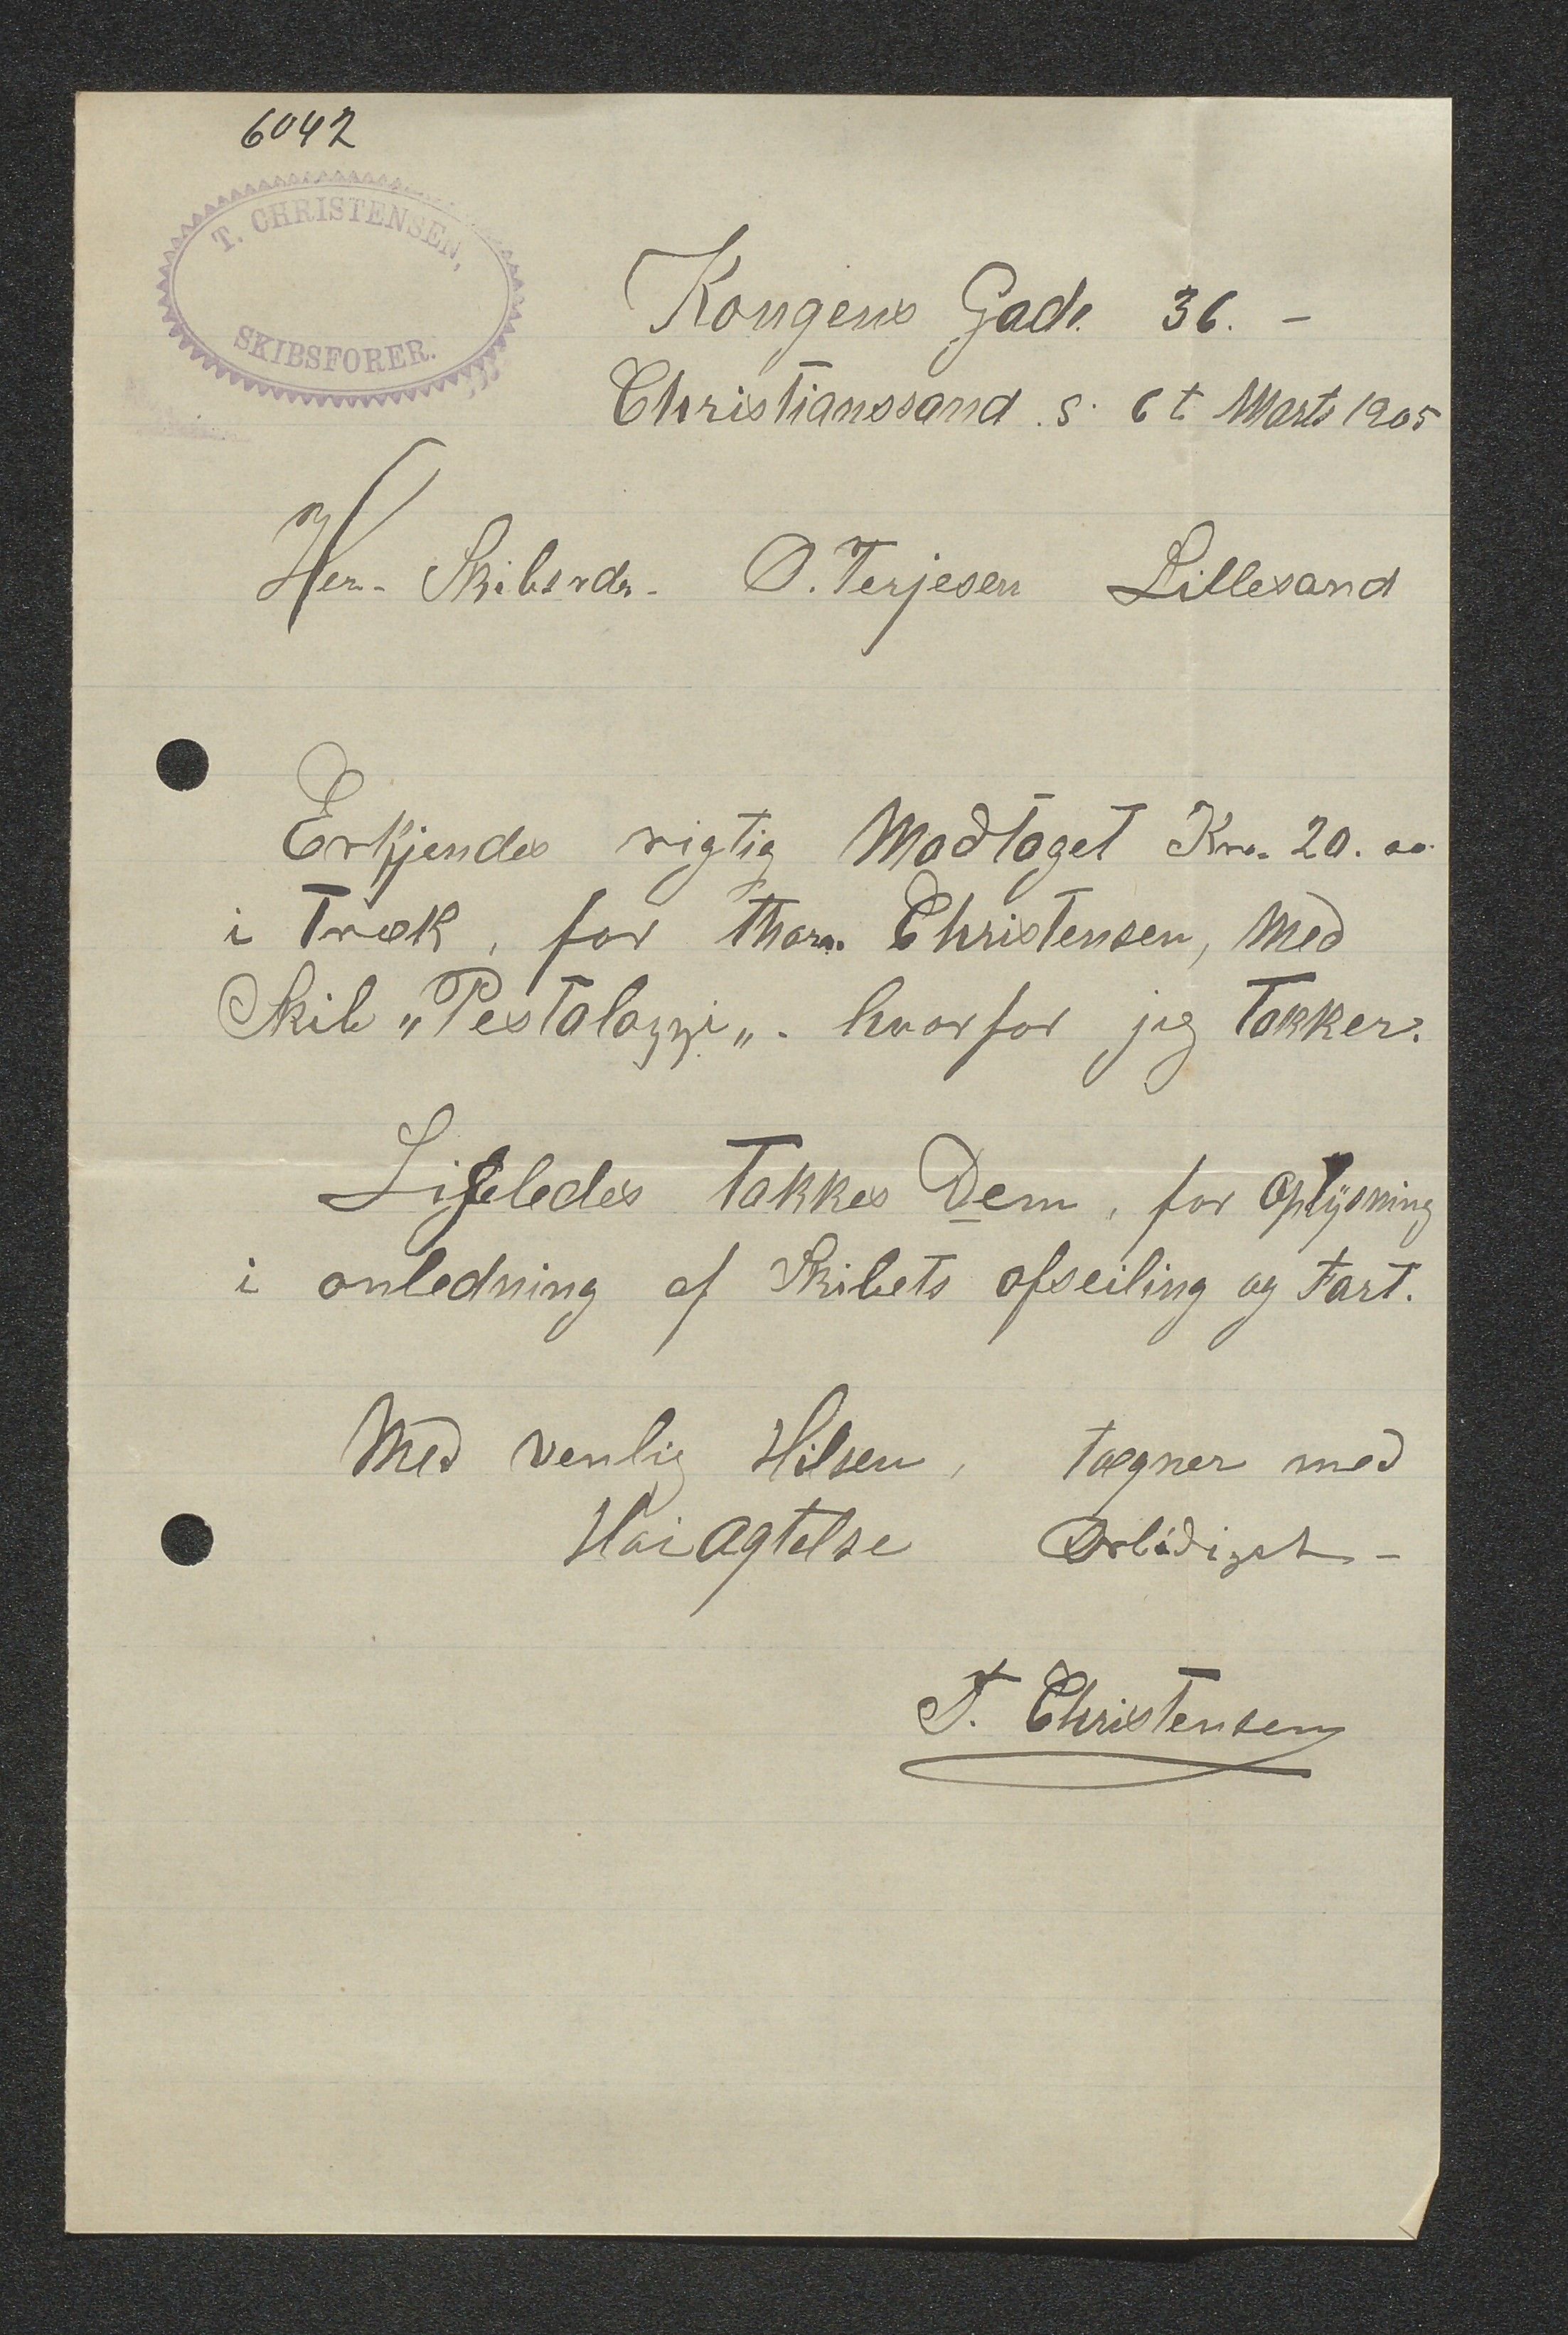 6042
T. CHRISTENSEN,
SKIBSFORER.
Kongens Gade 36. -
Christianssand . S. 6 t Marts 1905
Herr. Skibsrdr. O. Terjesen Lillesand
Erkjendes rigtig Modtaget Kr. 20. oo
i Træk, for Thorn. Christensen, Med
Skib „Pestalozzi„. hvorfor jeg Takker.
Ligeledes Takkes Dem, for Oplysning
i anledning af Skibets afseiling og Fart.
Med venlig Hilsen, tegner med
Høi Agtelse Ærbødigst -
T. Christensen